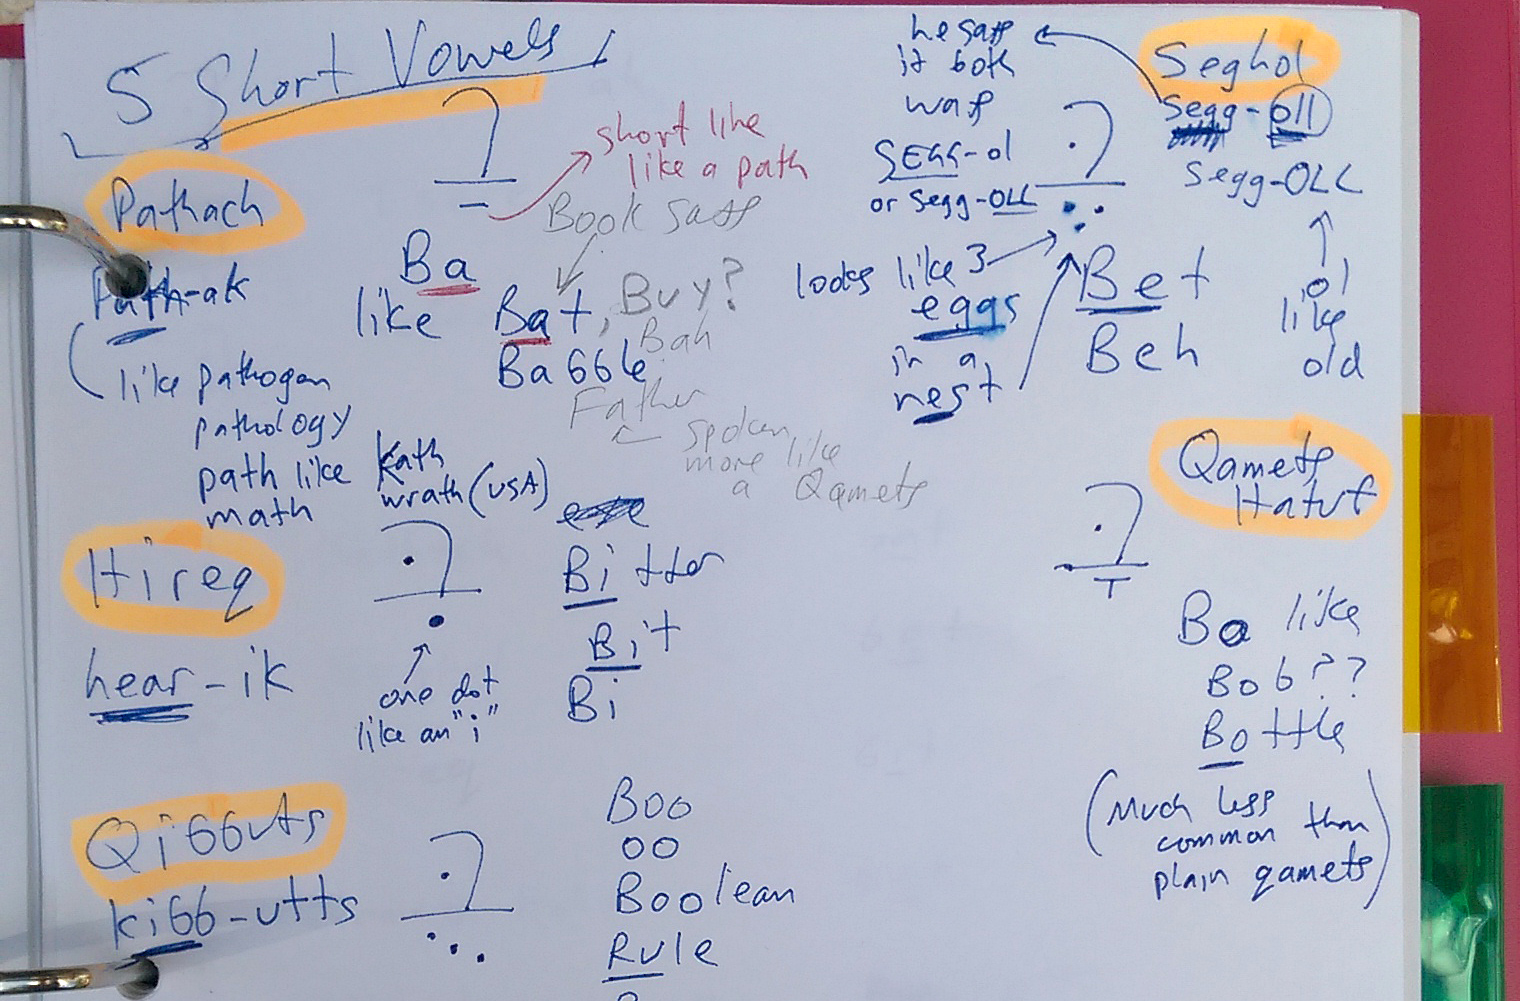 5 Short Vowels
Pathach
Path-ak
like pathogen
pathology
path like Kath
math wrath (USA)
short like
like a path
Book says
Ba
like Bat, Buy?
Bah
Babble
Father
← spoken
more like
a Qamets
he says
it both
ways
SEGG-ol
or segg-OLL
Seghol
Segg-oll
Segg-OLL
↑
ol
like
old
looks like 3
eggs
in a
nest
Bet
Beh
Hireq
hear-ik
one dot
like an "i"
Bitter
Bit
Bi
Qamets
Hatuf
Ba like
Bob??
Bottle
(Much less
common than
plain qamets)
Qibbuts
kibb-utts
Boo
oo
Boolean
Rule